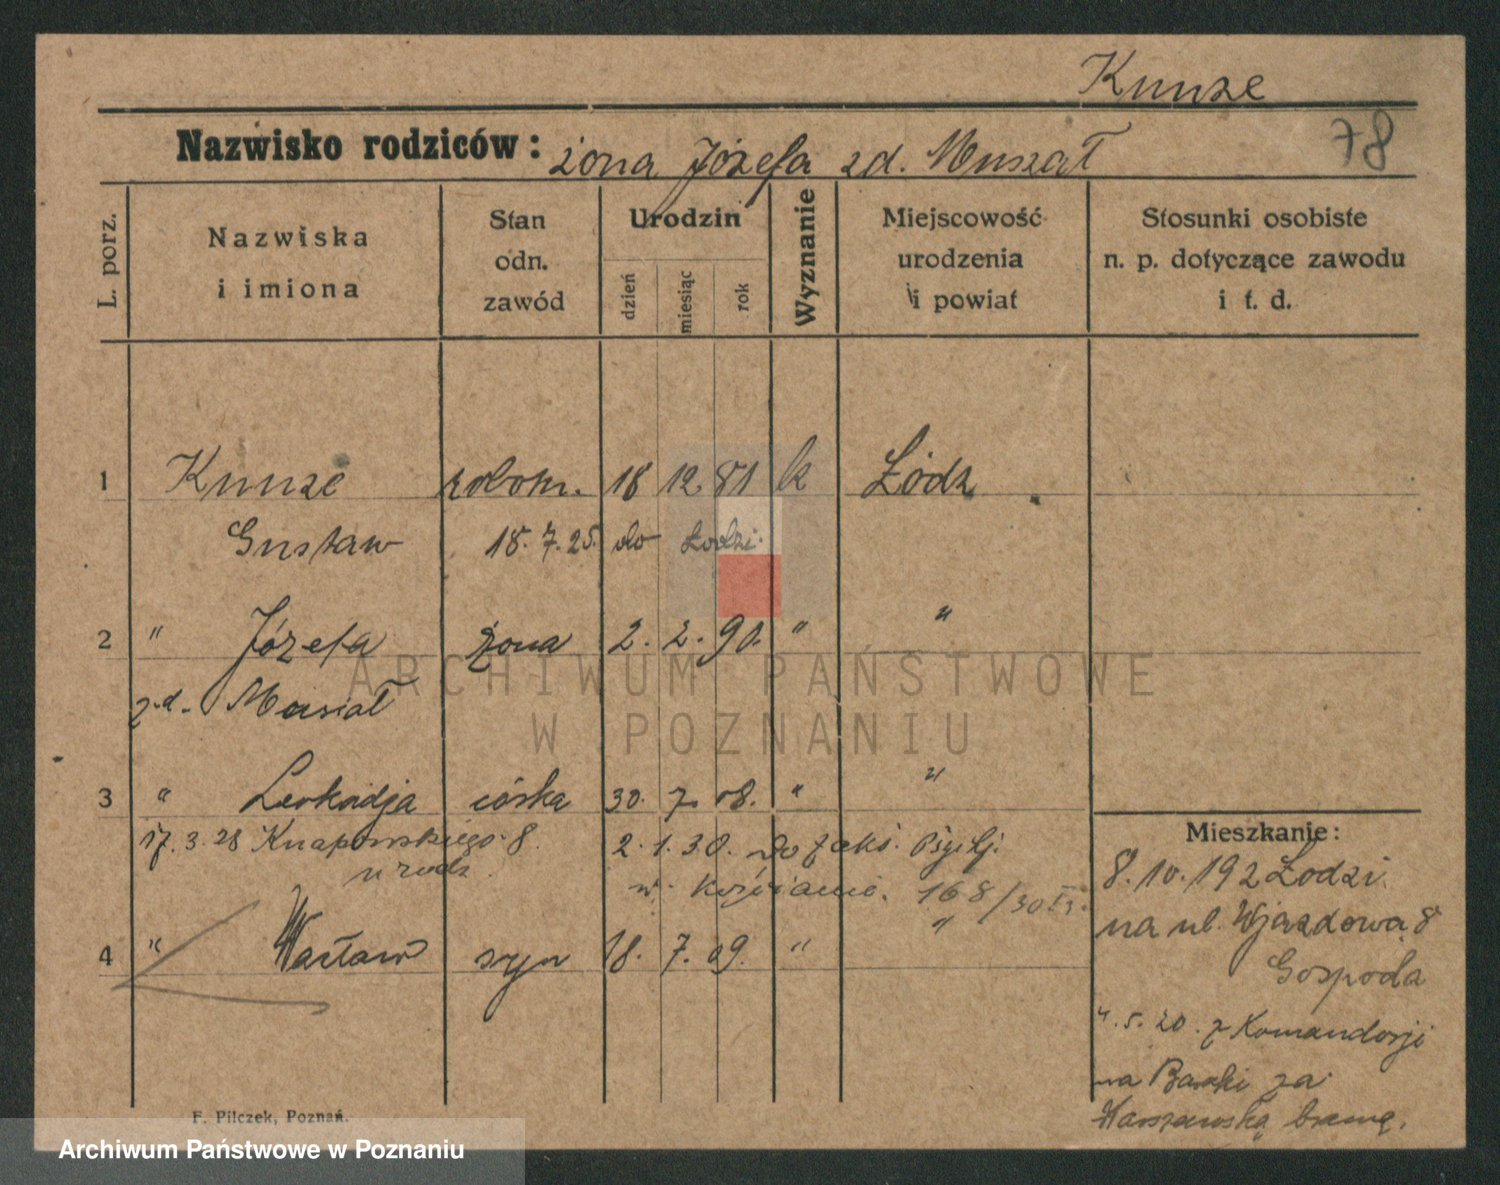 Kunze
78
Nazwisko rodziców: żona Józefa zd. Muszał
L. porz.
Nazwiska i imiona
Stan odn. zawód
Urodzin
dzień miesiąc rok
Wyznanie
Miejscowość urodzenia i powiat
Stosunki osobiste n. p. dotyczące zawodu i t. d.
1 Kunze robotn. 18 12. 81 k Łódz
Gustaw 18. 7. 25. do Łodzi.
2 " Józefa żona 2. 2. 90. " "
z.d. Musiał
3 " Leokadja córka 30. 7. 08. " "
17. 3. 28 Knapowskiego 8. 2. 1. 30. do Zakł.
u rodz. w 168/30
4 " Wacław syn 18. 7. 09. " "
Mieszkanie:
8. 10. 192 Łodzi
na ul. Wjazdową 8
Gospoda
5. 20. z Komandorji
na Baraki za
Warszawską bramę.
F. Pilczek, Poznań.
ARCHIWUM PAŃSTWOWE
W POZNANIU
Archiwum Państwowe w Poznaniu